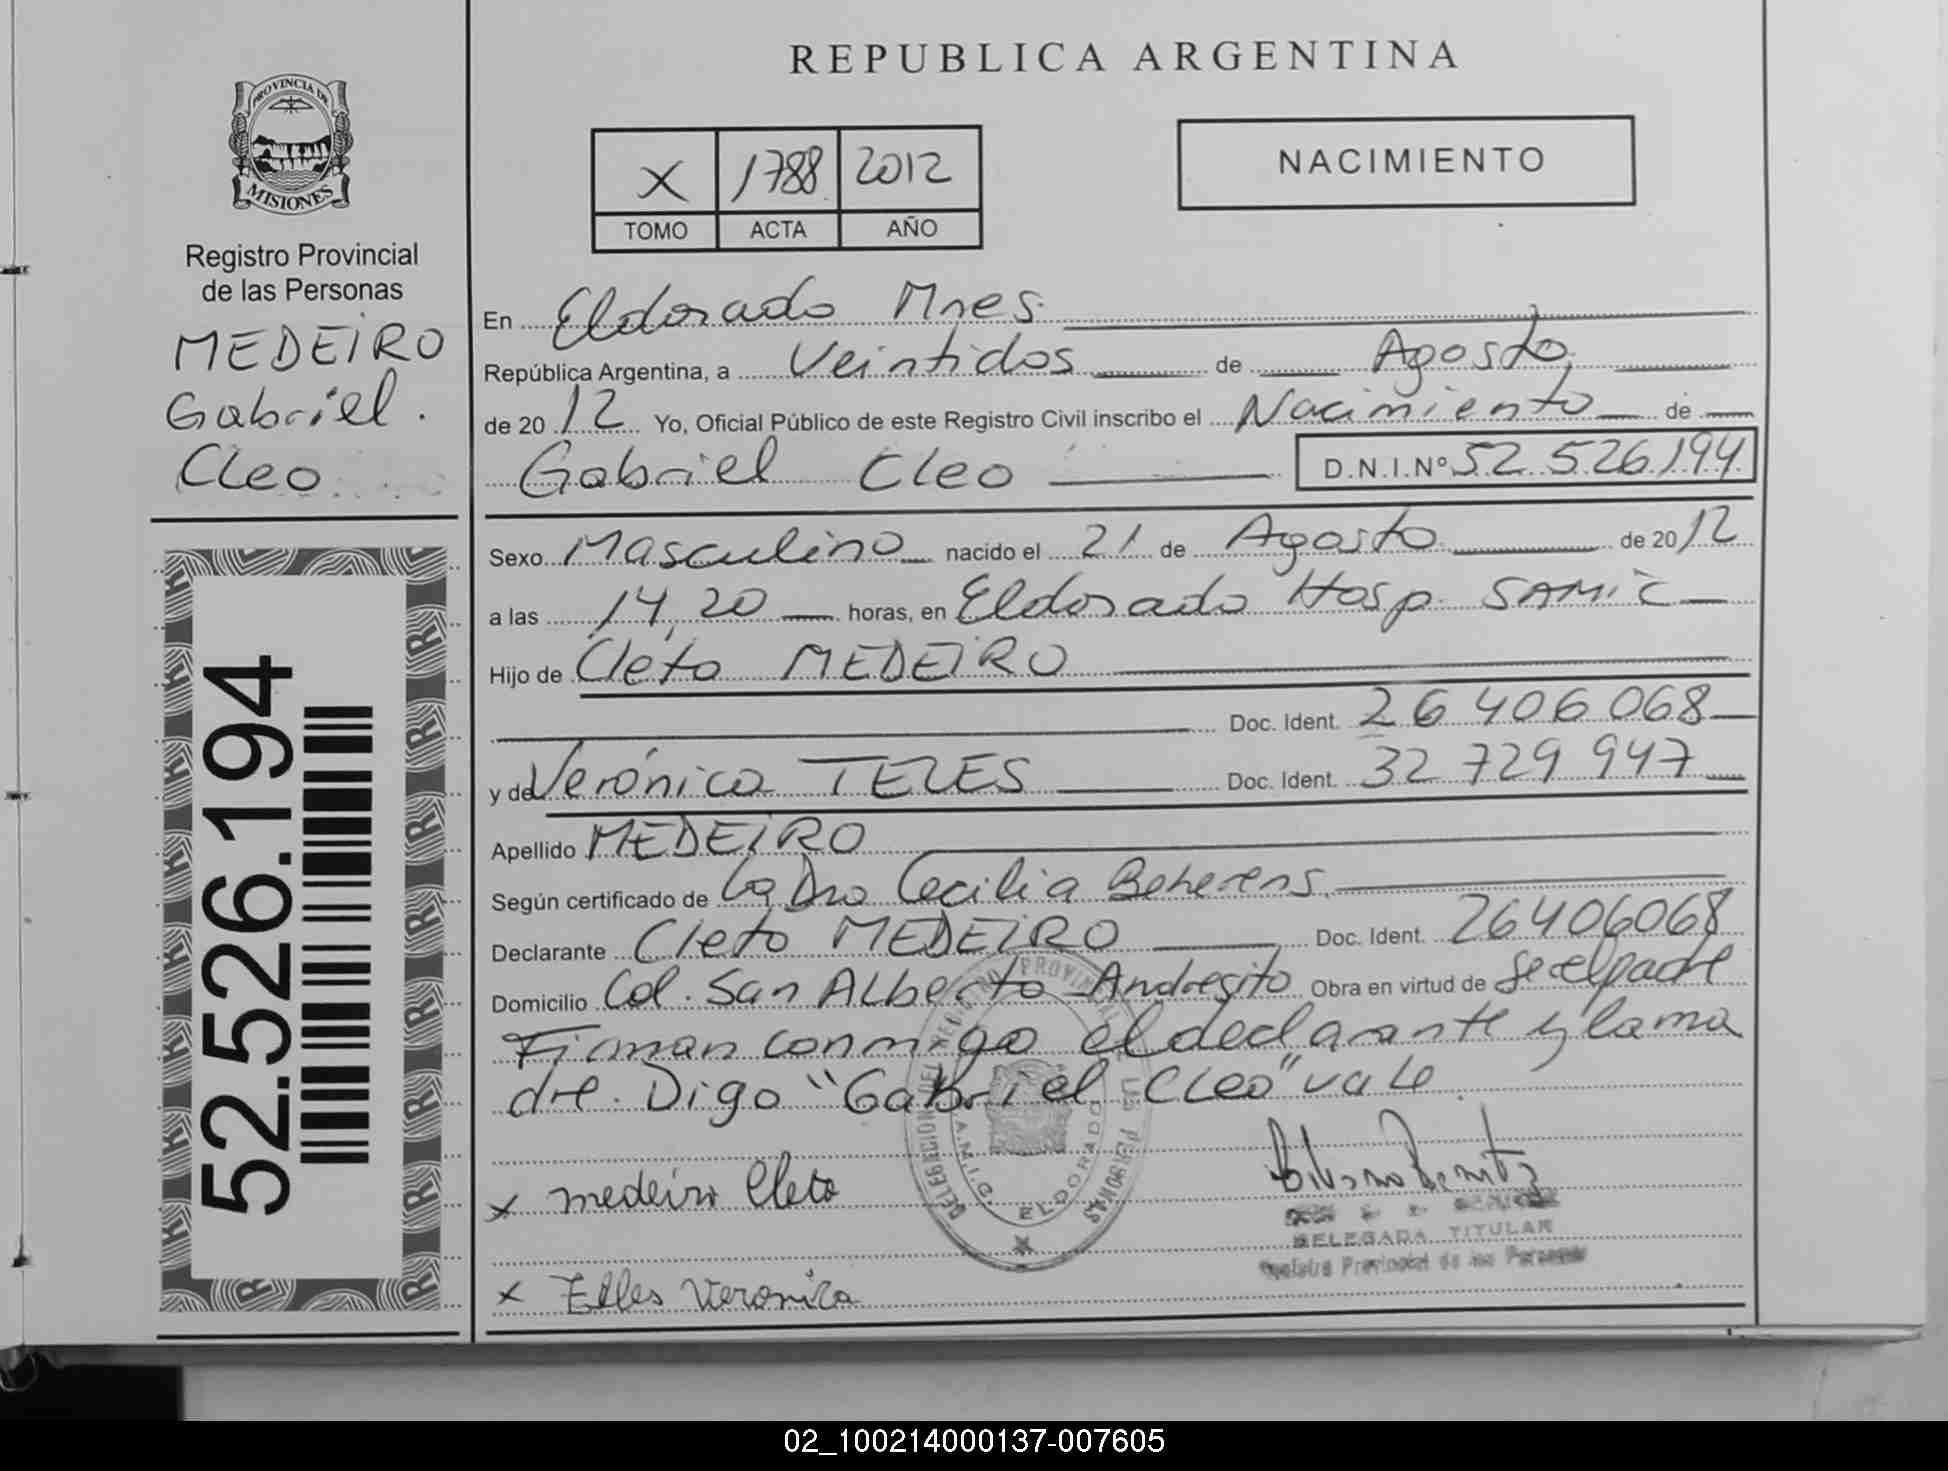 REPUBLICA ARGENTINA
PROVINCIA DE
MISIONES
Registro Provincial
de las Personas
MEDEIRO
Gabriel.
Cleo
52.526.194
X 1788 2012
TOMO ACTA AÑO
NACIMIENTO
En Eldorado Mnes.
República Argentina, a Veintidos de Agosto
de 2012 Yo, Oficial Público de este Registro Civil inscribo el Nacimiento de
Gabriel Cleo D.N.I.Nº 52.526.194
Sexo Masculino nacido el 21 de Agosto de 2012
a las 14,20 horas, en Eldorado Hosp. SAMIC
Hijo de Cleto MEDEIRO
Doc. Ident. 26 406 068
y de Verónica TELES Doc. Ident. 32 729 947
Apellido MEDEIRO
Según certificado de La Dra Cecilia Beherens.
Declarante Cleto MEDEIRO Doc. Ident. 26406068
Domicilio Col. San Alberto Andresito Obra en virtud de Se el padre
Firman conmigo el declarante y la ma
dre. Digo "Gabriel Cleo" vale
x medeiro Cleto
DELEGADA TITULAR
Registro Provincial de las Personas
x Telles Veronica
ELDORADO
02_100214000137-007605